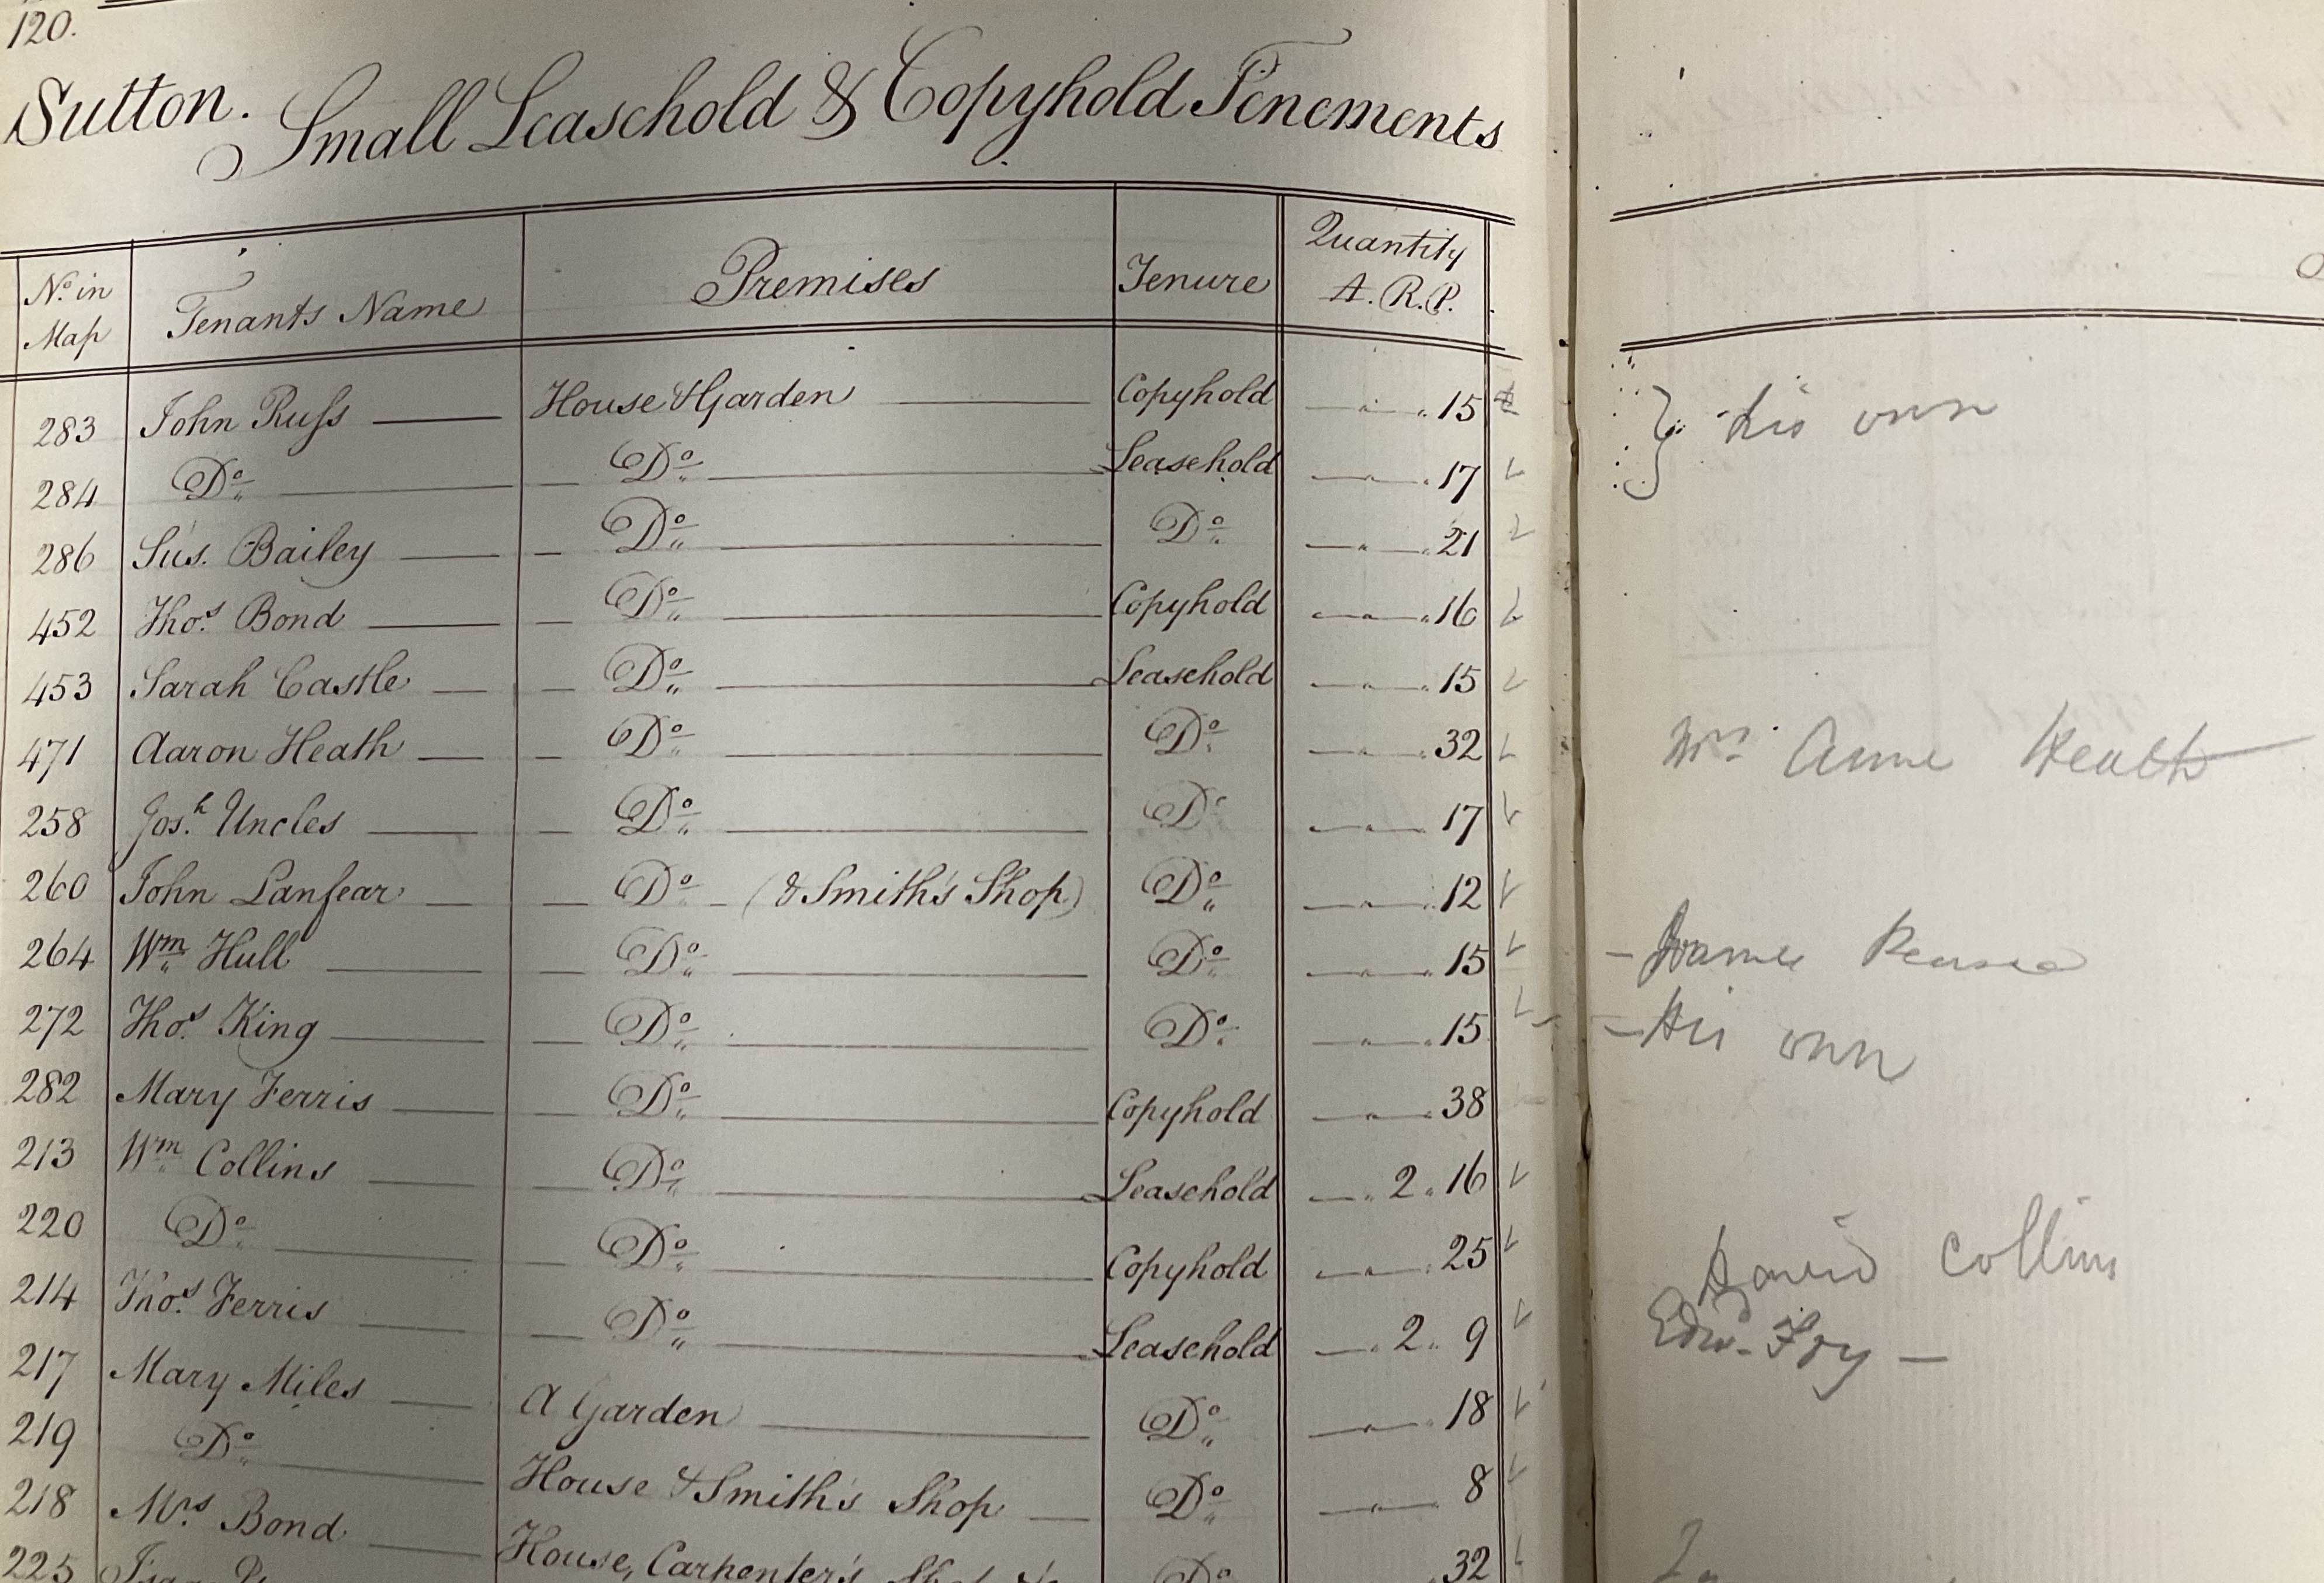 120.
Sutton. Small Leasehold & Copyhold Tenements
No. in Map Tenants Name Premises Tenure Quantity A. R. P.
283 John Ruſs House & Garden Copyhold 15 his own
284 Do. Do. Leasehold 17
286 Sus. Bailey Do. Do. 21
452 Thos. Bond Do. Copyhold 16
453 Sarah Castle Do. Leasehold 15
471 Aaron Heath Do. Do. 32 Mrs Anne Heath
258 Josh. Uncles Do. Do. 17
260 John Lanfear Do. (& Smith's Shop) Do. 12
264 Wm Hull Do. Do. 15
272 Thos. King Do. Do. 15 His own
282 Mary Ferris Do. Copyhold 38
213 Wm Collins Do. Leasehold 2 16
220 Do. Do. Copyhold 25 David Collins
214 Thos. Ferris Do. Leasehold 2 9 Edw. Fry
217 Mary Miles A Garden Do. 18
219 Do. House & Smith's Shop Do. 8
218 Mrs. Bond House, Carpenter's Do. 32
225